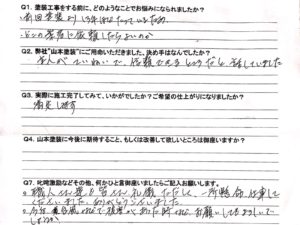 Q1. 塗装工事をする前に、どのようなことでお悩みになられましたか？
・前回塗装より13年ほどたっているため
・どこの業者に依頼したらよいのか
Q2. 弊社"山本塗装"にご用命いただきました、決め手はなんでしたか？
人がていねいで、信頼できるところだと、話していました
Q3. 実際に施工完了してみて、いかがでしたか？ご希望の仕上がりになりましたか？
満足してます
Q4. 山本塗装に今後に期待すること、もしくは改善して欲しいところは御座いますか？
Q7. 叱咤激励などその他、何かひと言御座いましたらご記入お願いします。
・職人さん達も皆さん礼儀ただしく、一所懸命仕事して
くださいました。ありがとうございました。